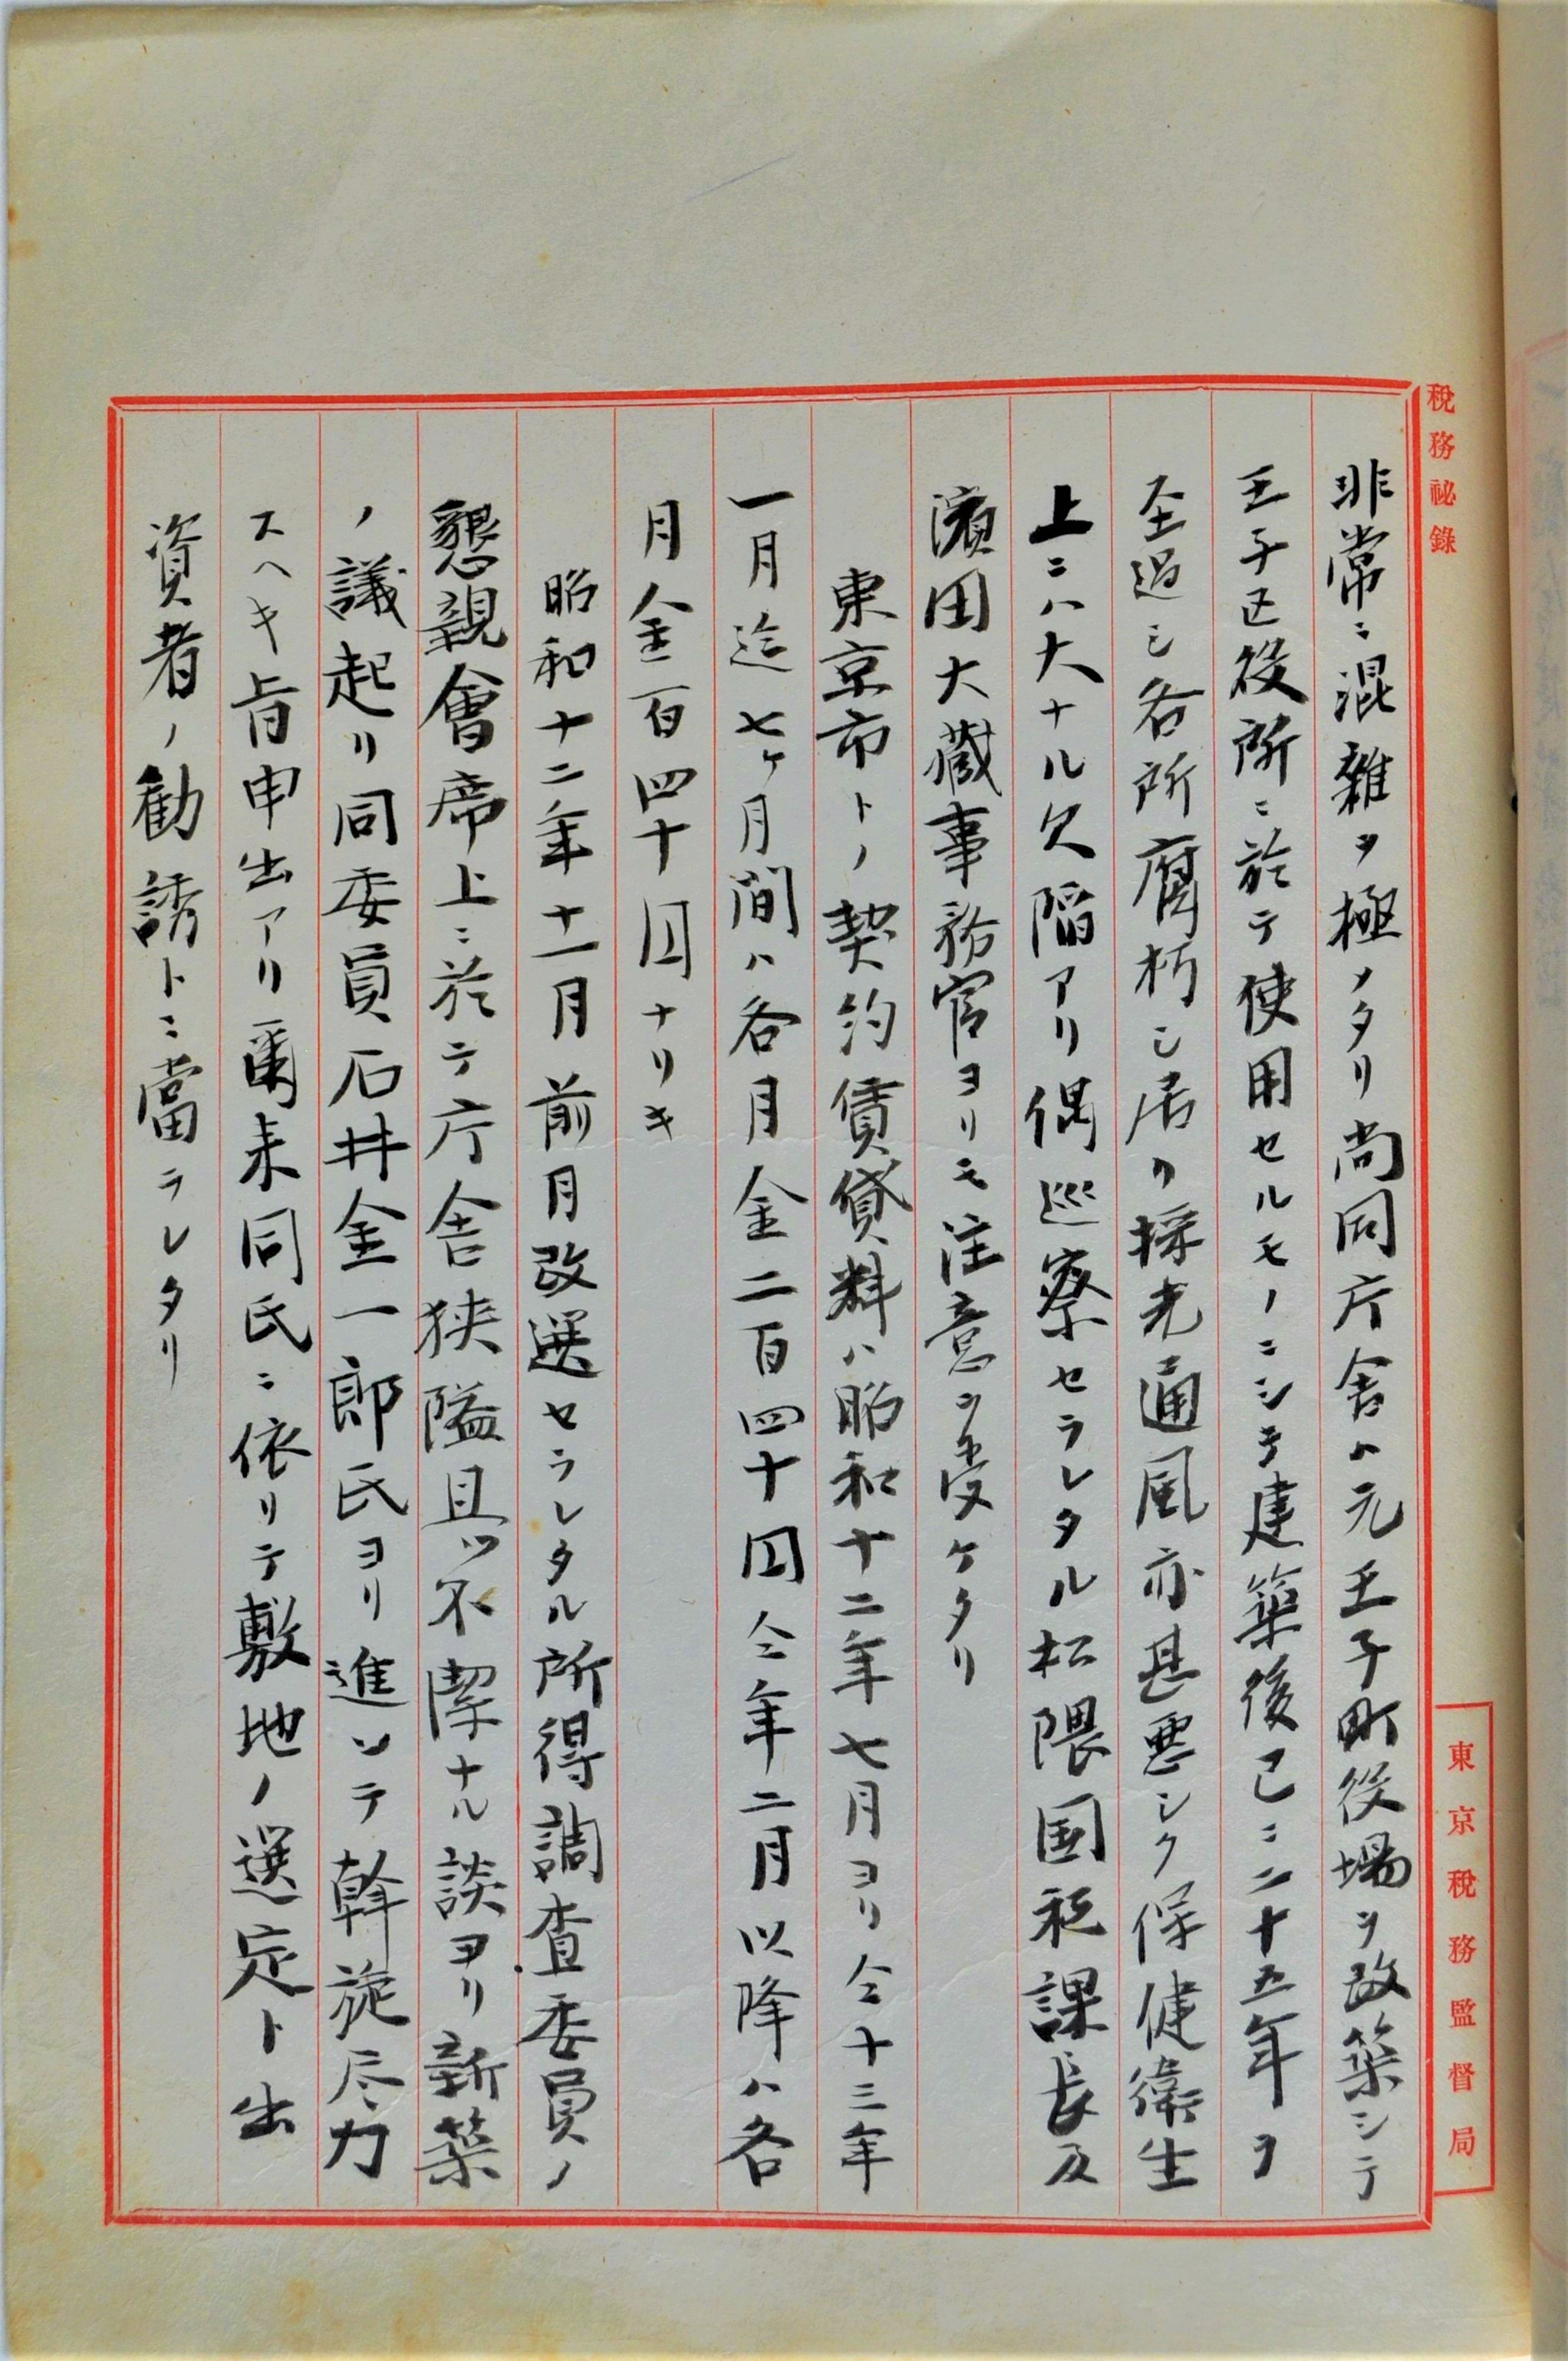 税務祕錄
東京税務監督局
非常ニ混雜ヲ極メタリ尚同庁舎ハ元王子町役場ヲ改築シテ
王子区役所ニ於テ使用セルモノニシテ建築後已ニ二十五年ヲ
全過シ各所腐朽シ居リ採光通風亦甚悪シク保健衛生
上ニハ大ナル欠陥アリ偶巡察セラレタル松隈国税課長及
濱田大蔵事務官ヨリモ注意ヲ受ケタリ
東京市トノ契約賃貸料ハ昭和十二年七月ヨリ仝十三年
一月迄七ヶ月間ハ各月金二百四十円仝年二月以降ハ各
月金百四十円ナリキ
昭和十二年十一月前月改選セラレタル所得調査委員ノ
懇親會席上ニ於テ庁舎狭隘且ツ不潔ナル談ヨリ新築
ノ議起リ同委員石井金一郎氏ヨリ進ンテ斡旋尽力
スヘキ旨申出アリ爾来同氏ニ依リテ敷地ノ選定ト出
資者ノ勧誘トニ當ラレタリ